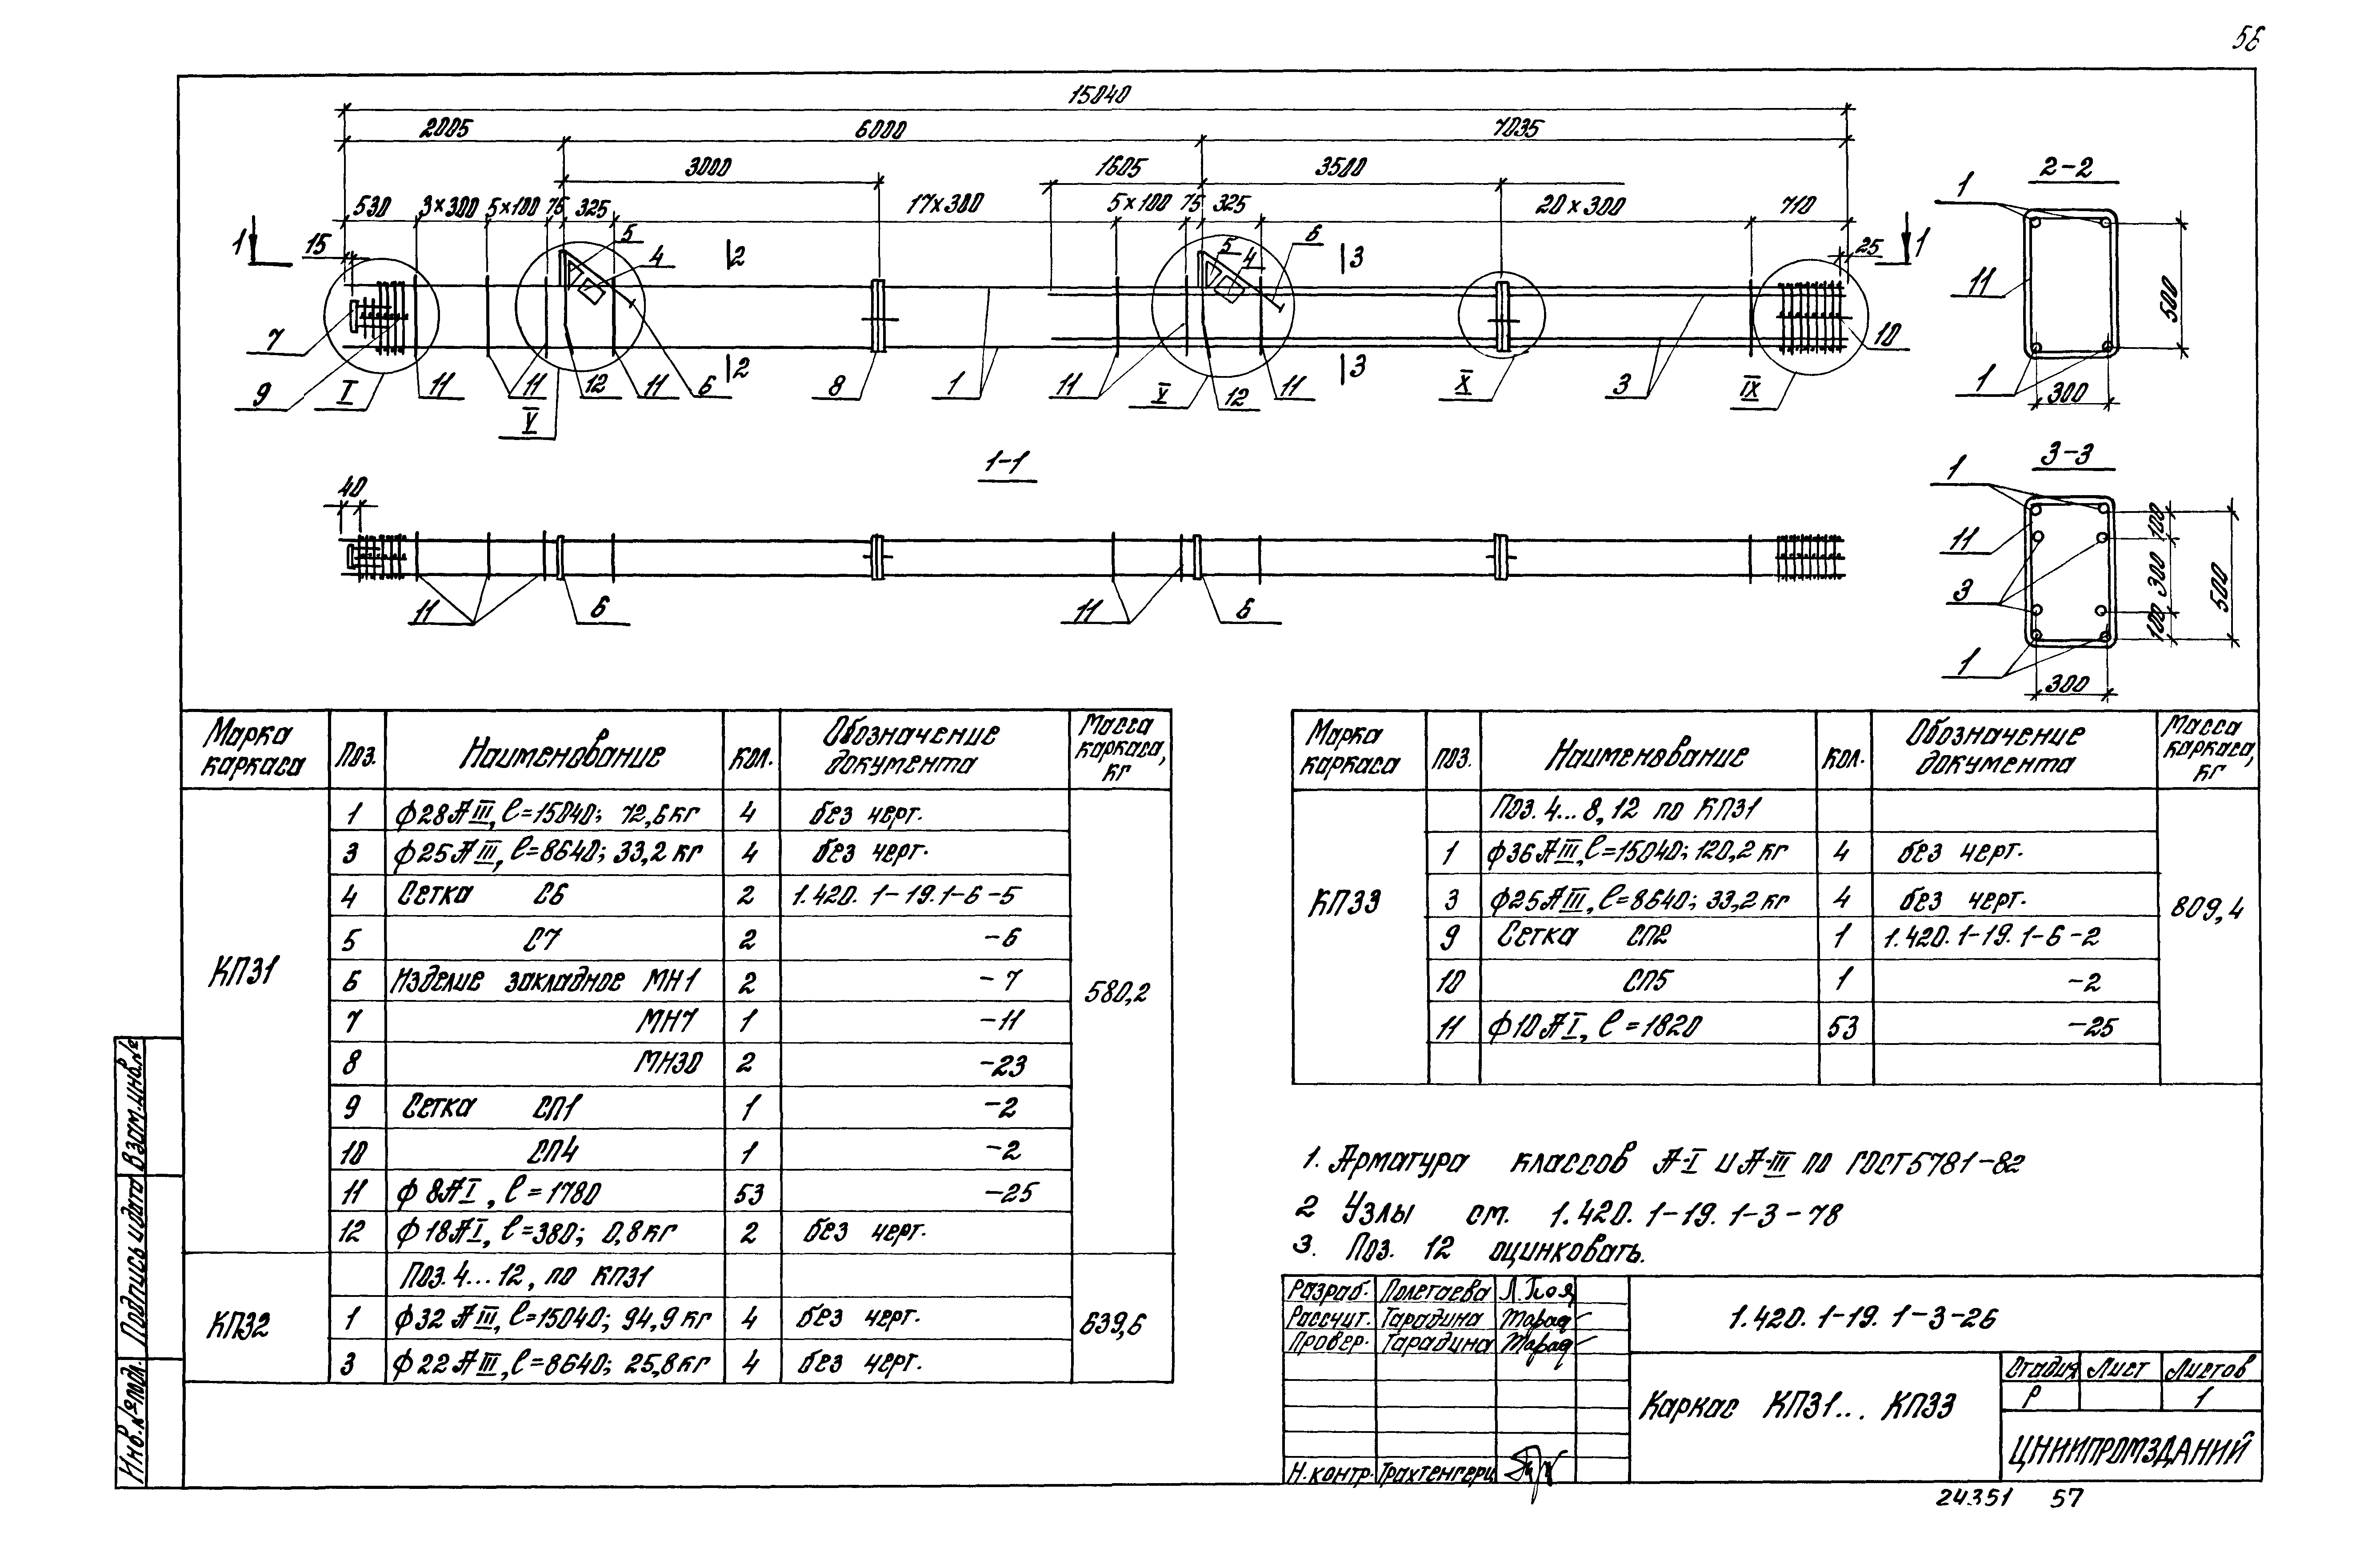 58
15040
2005 6000 7035
3000 1605 3500
530 3×300 5×100 75 325 17×300 5×100 75 325 20×300 710
15 25
1 1
5 4 2 5 4 6 3
7 9 I 11 11 V 12 11 6 2 8 1 11 V 12 11 3 X 3 IX 10
2-2
1
11
500
1
300
1-1
40
11 6 11 6
3-3
1
11
3
1
100
300
100
500
300
Марка каркаса | Поз. | Наименование | Кол. | Обозначение документа | Масса каркаса, кг
КП31 580,2
1 ϕ28АIII, ℓ=15040; 72,6кг 4 без черт.
3 ϕ25АIII, ℓ=8640; 33,2кг 4 без черт.
4 Сетка С6 2 1.420.1-19.1-6-5
5 С7 2 -6
6 Изделие закладное МН1 2 -7
7 МН7 1 -11
8 МН30 2 -23
9 Сетка СП1 1 -2
10 СП4 1 -2
11 ϕ8АI, ℓ=1780 53 -25
12 ϕ18АI, ℓ=380; 0,8кг 2 без черт.
КП32 639,6
Поз. 4...12, по КП31
1 ϕ32АIII, ℓ=15040; 94,9кг 4 без черт.
3 ϕ22АIII, ℓ=8640; 25,8кг 4 без черт.
Марка каркаса | Поз. | Наименование | Кол. | Обозначение документа | Масса каркаса, кг
КП33 809,4
Поз. 4...8, 12 по КП31
1 ϕ36АIII, ℓ=15040; 120,2кг 4 без черт.
3 ϕ25АIII, ℓ=8640; 33,2кг 4 без черт.
9 Сетка СП2 1 1.420.1-19.1-6-2
10 СП5 1 -2
11 ϕ10АI, ℓ=1820 53 -25
1. Арматура классов А-I и А-III по ГОСТ5781-82
2 Узлы см. 1.420.1-19.1-3-78
3. Поз. 12 оцинковать.
Разраб. Полетаева
Рассчит. Тарадина
Провер. Тарадина
Н.контр. Трахтенгерц
1.420.1-19.1-3-26
Каркас КП31... КП33
Стадия Лист Листов
Р 1
ЦНИИПРОМЗДАНИЙ
Взам.инв.№
Подпись и дата
Инв.№подл.
24351 57